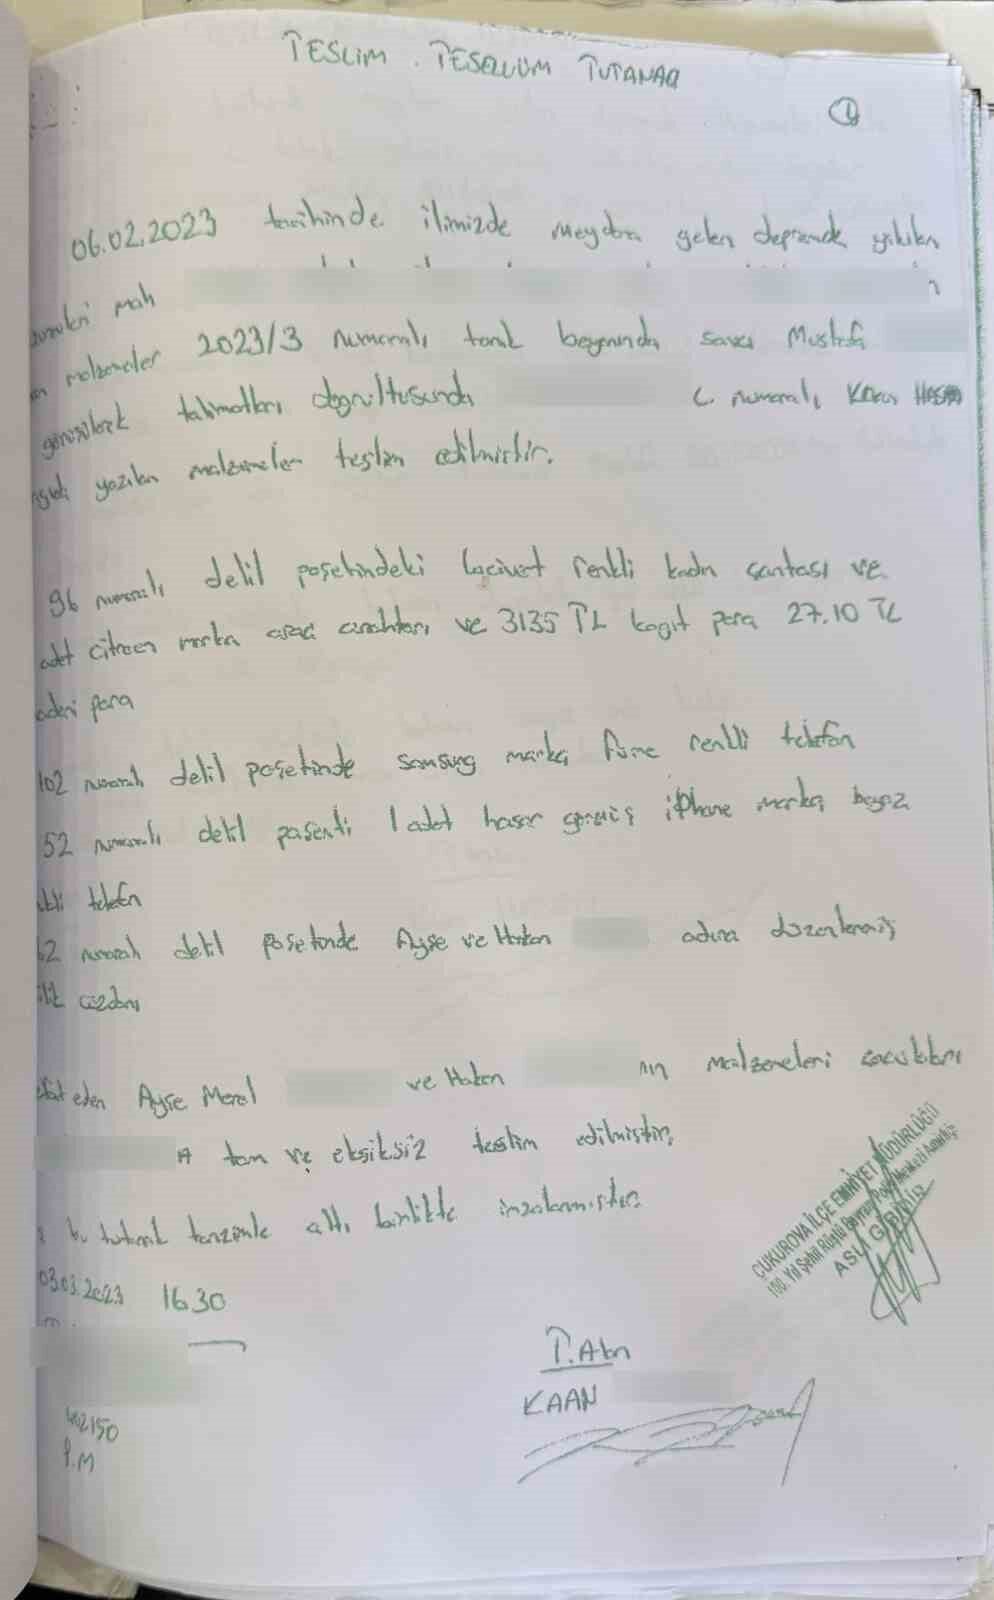 TESLİM . TESELLÜM TUTANAĞI
1
06.02.2023 tarihinde ilimizde meydana gelen depremde yıkılan
mah
malzemeler 2023/3 numaralı tanık beyanında savcı Mustafa
görüşülerek talimatları doğrultusunda numaralı Kaan
yazılan malzemeler teslim edilmiştir.
96 numaralı delil poşetindeki lacivert renkli kadın çantası ve
adet citroen marka araç anahtarı ve 3135 TL kağıt para 27.10 TL
para
102 numaralı delil poşetinde samsung marka füme renkli telefon
52 numaralı delil poşeti 1 adet hasar görmüş iphone marka beyaz
telefon
2 numaralı delil poşetinde Ayşe ve Hakan adına düzenlenmiş
cüzdanı
eden Ayşe Meral ve Hakan 'nın malzemeleri çocukları
A tam ve eksiksiz teslim edilmiştir.
bu tutanak tanzimle altı birlikte imzalanmıştır.
03.03.2023 16.30
ÇUKUROVA İLÇE EMNİYET MÜDÜRLÜĞÜ
100. Yıl Şehit Rüştü Bayram Polis Merkezi Amirliği
ASLI GİBİDİR
T.Alan
KAAN
402150
P.M